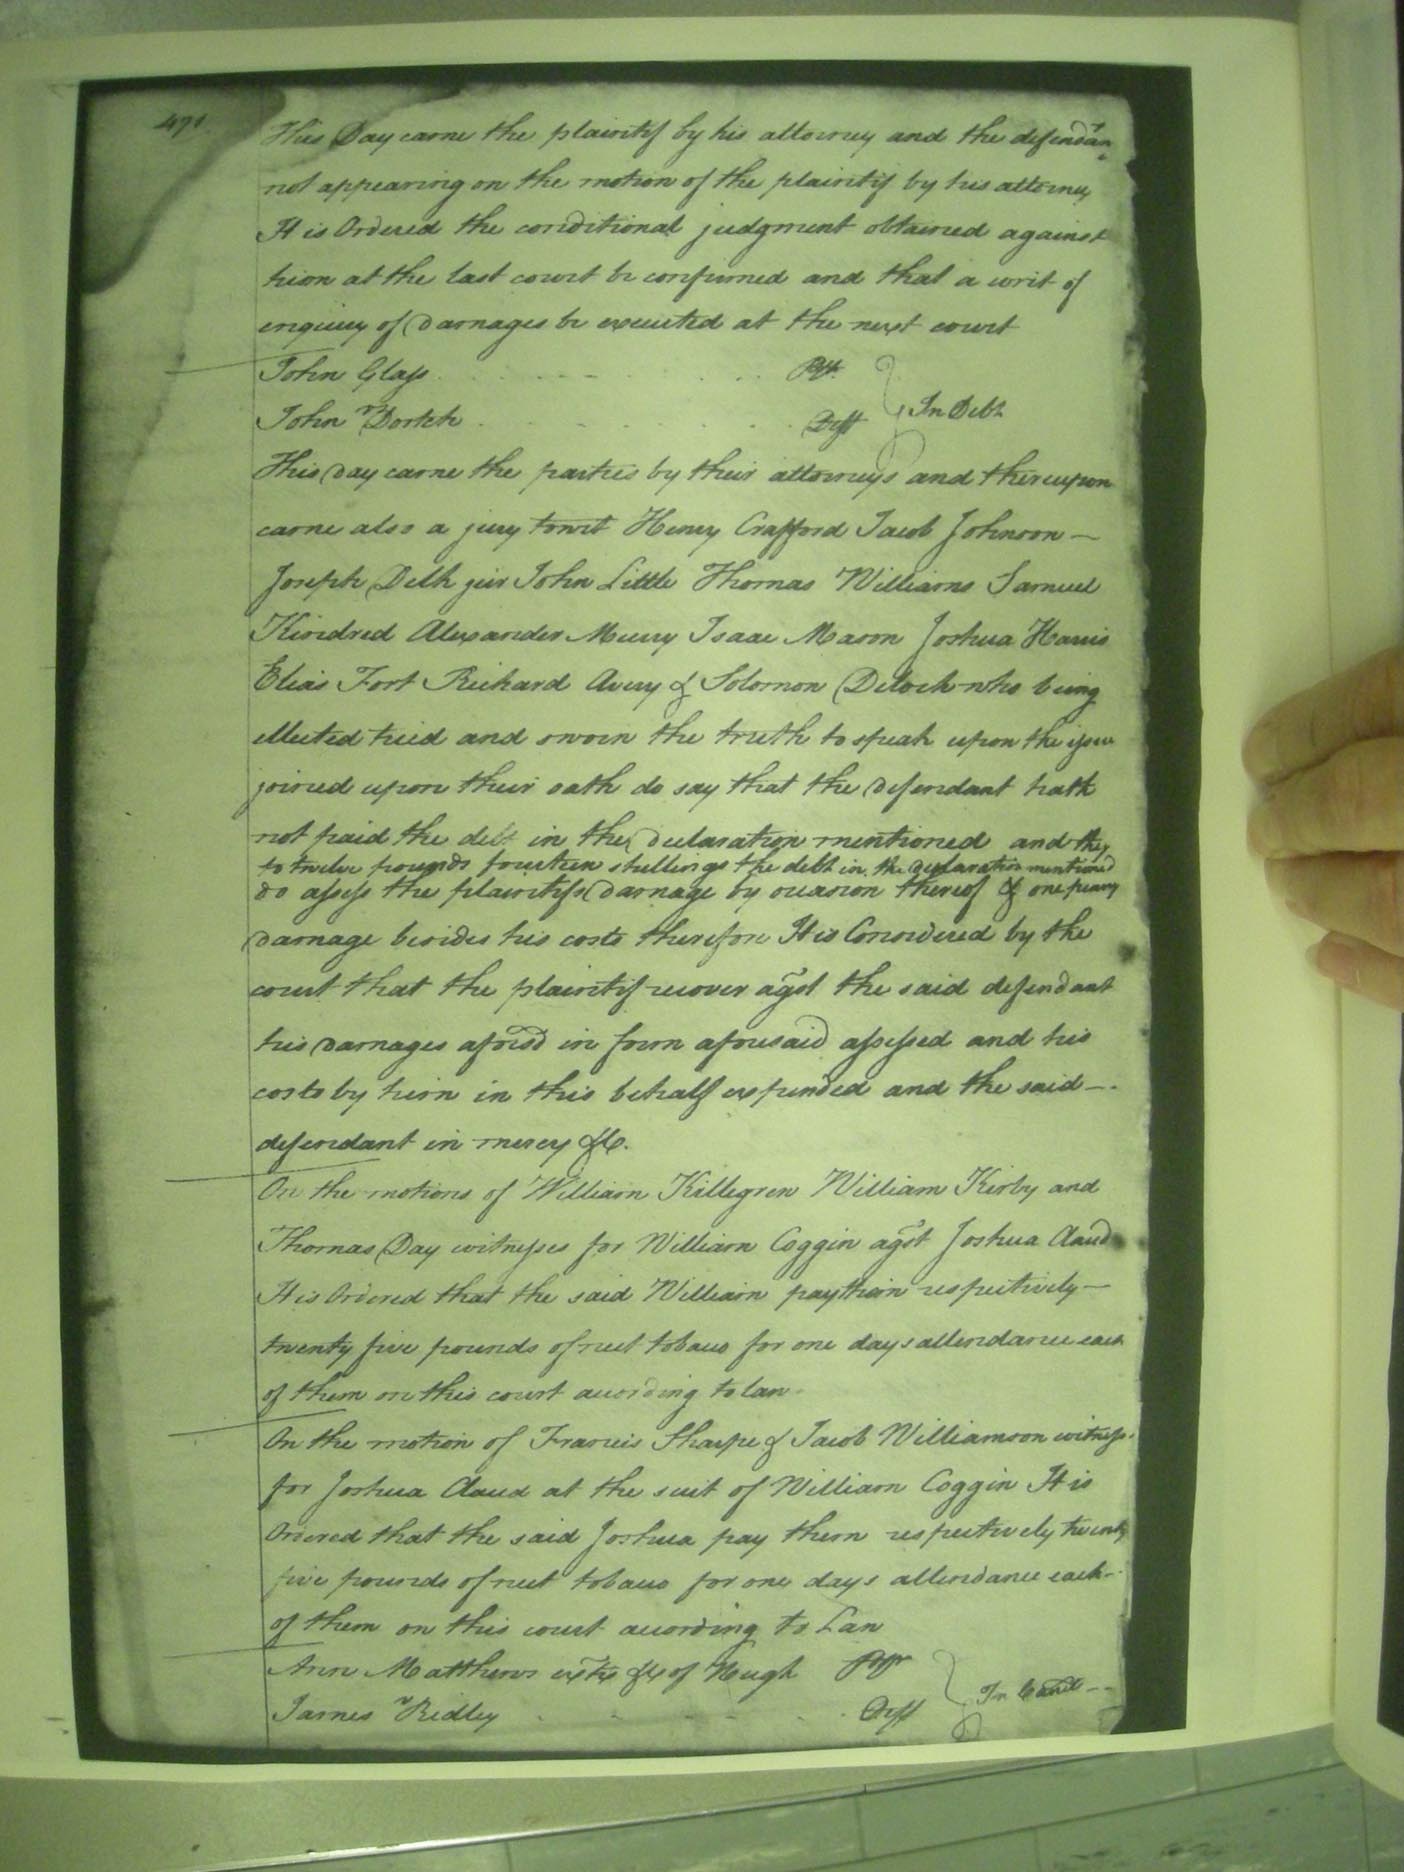 471
This Day came the plaintif by his attorney and the defendant
not appearing on the motion of the plaintif by his attorney
It is Ordered the conditional judgment obtained against
him at the last court be confirmed and that a writ of
enquiry of Damages be executed at the next court
John Glass Pltf
John Dortch Deft In Debt
This Day came the parties by their attorneys and thereupon
came also a jury towit Henry Crafford Jacob Johnson
Joseph Delk jur John Little Thomas Williams Samuel
Kindred Alexander Murry Isaac Mason Joshua Harris
Elias Fort Richard Avery & Solomon Deloch who being
ellected tried and sworn the truth to speak upon the issue
joined upon their oath do say that the defendant hath
not paid the debt in the Declaration mentioned and they
to twelve pounds fourteen shillings the debt in the declaration mentioned
do assess the plaintifs Damage by occasion thereof & one penny
damage besides his costs therefore It is Considered by the
court that the plaintif recover agst the said defendant
his Damages aforsd in form aforesaid assessed and his
costs by him in this behalf expended and the said
defendant in mercy &c.
On the motions of William Killegren William Kirby and
Thomas Day witnesses for William Coggin agst Joshua Claud
It is Ordered that the said William pay them respectively
twenty five pounds of neet tobacco for one days attendance each
of them on this court according to law
On the motion of Francis Sharpe & Jacob Williamson witness
for Joshua Claud at the suit of William Coggin It is
Ordered that the said Joshua pay them respectively twenty
five pounds of neet tobacco for one days attendance each
of them on this court according to Law
Ann Matthews extx &c of Hugh Pltf
James Ridley Deft In